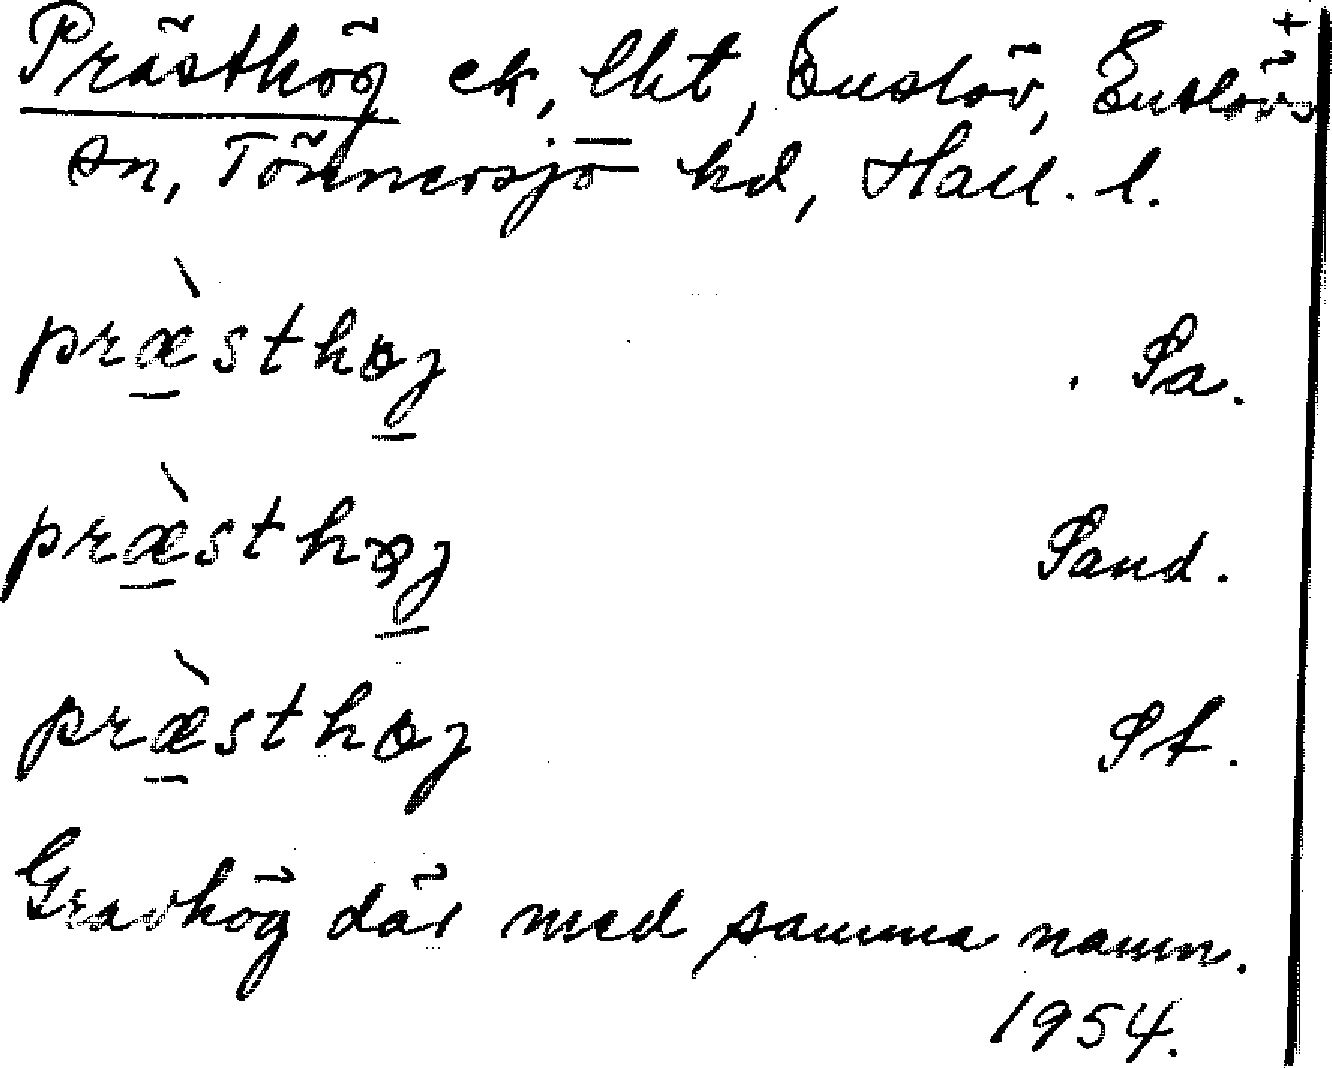 Prästhög ck, lht, Enslöv, Enslövs +
sn, Tönnersjö hd, Hall. l.
præ̀sthøj Sa.
præ̀sthøj Sand.
præ̀sthøj St.
Gravhög där med samma namn.
1954.